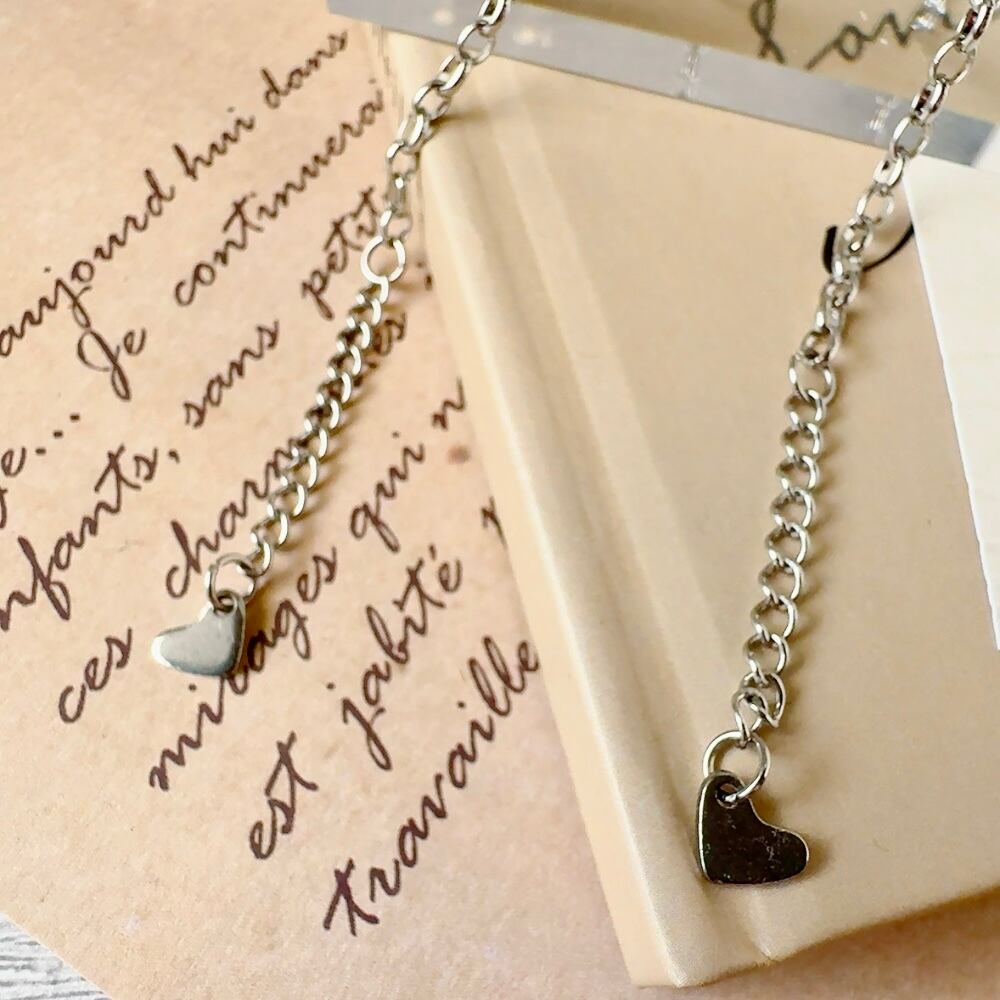 aujourd hui dans
Je continuerai
sans petit
nfants,
ces charm es
mirages qui n
est jabité
travaille